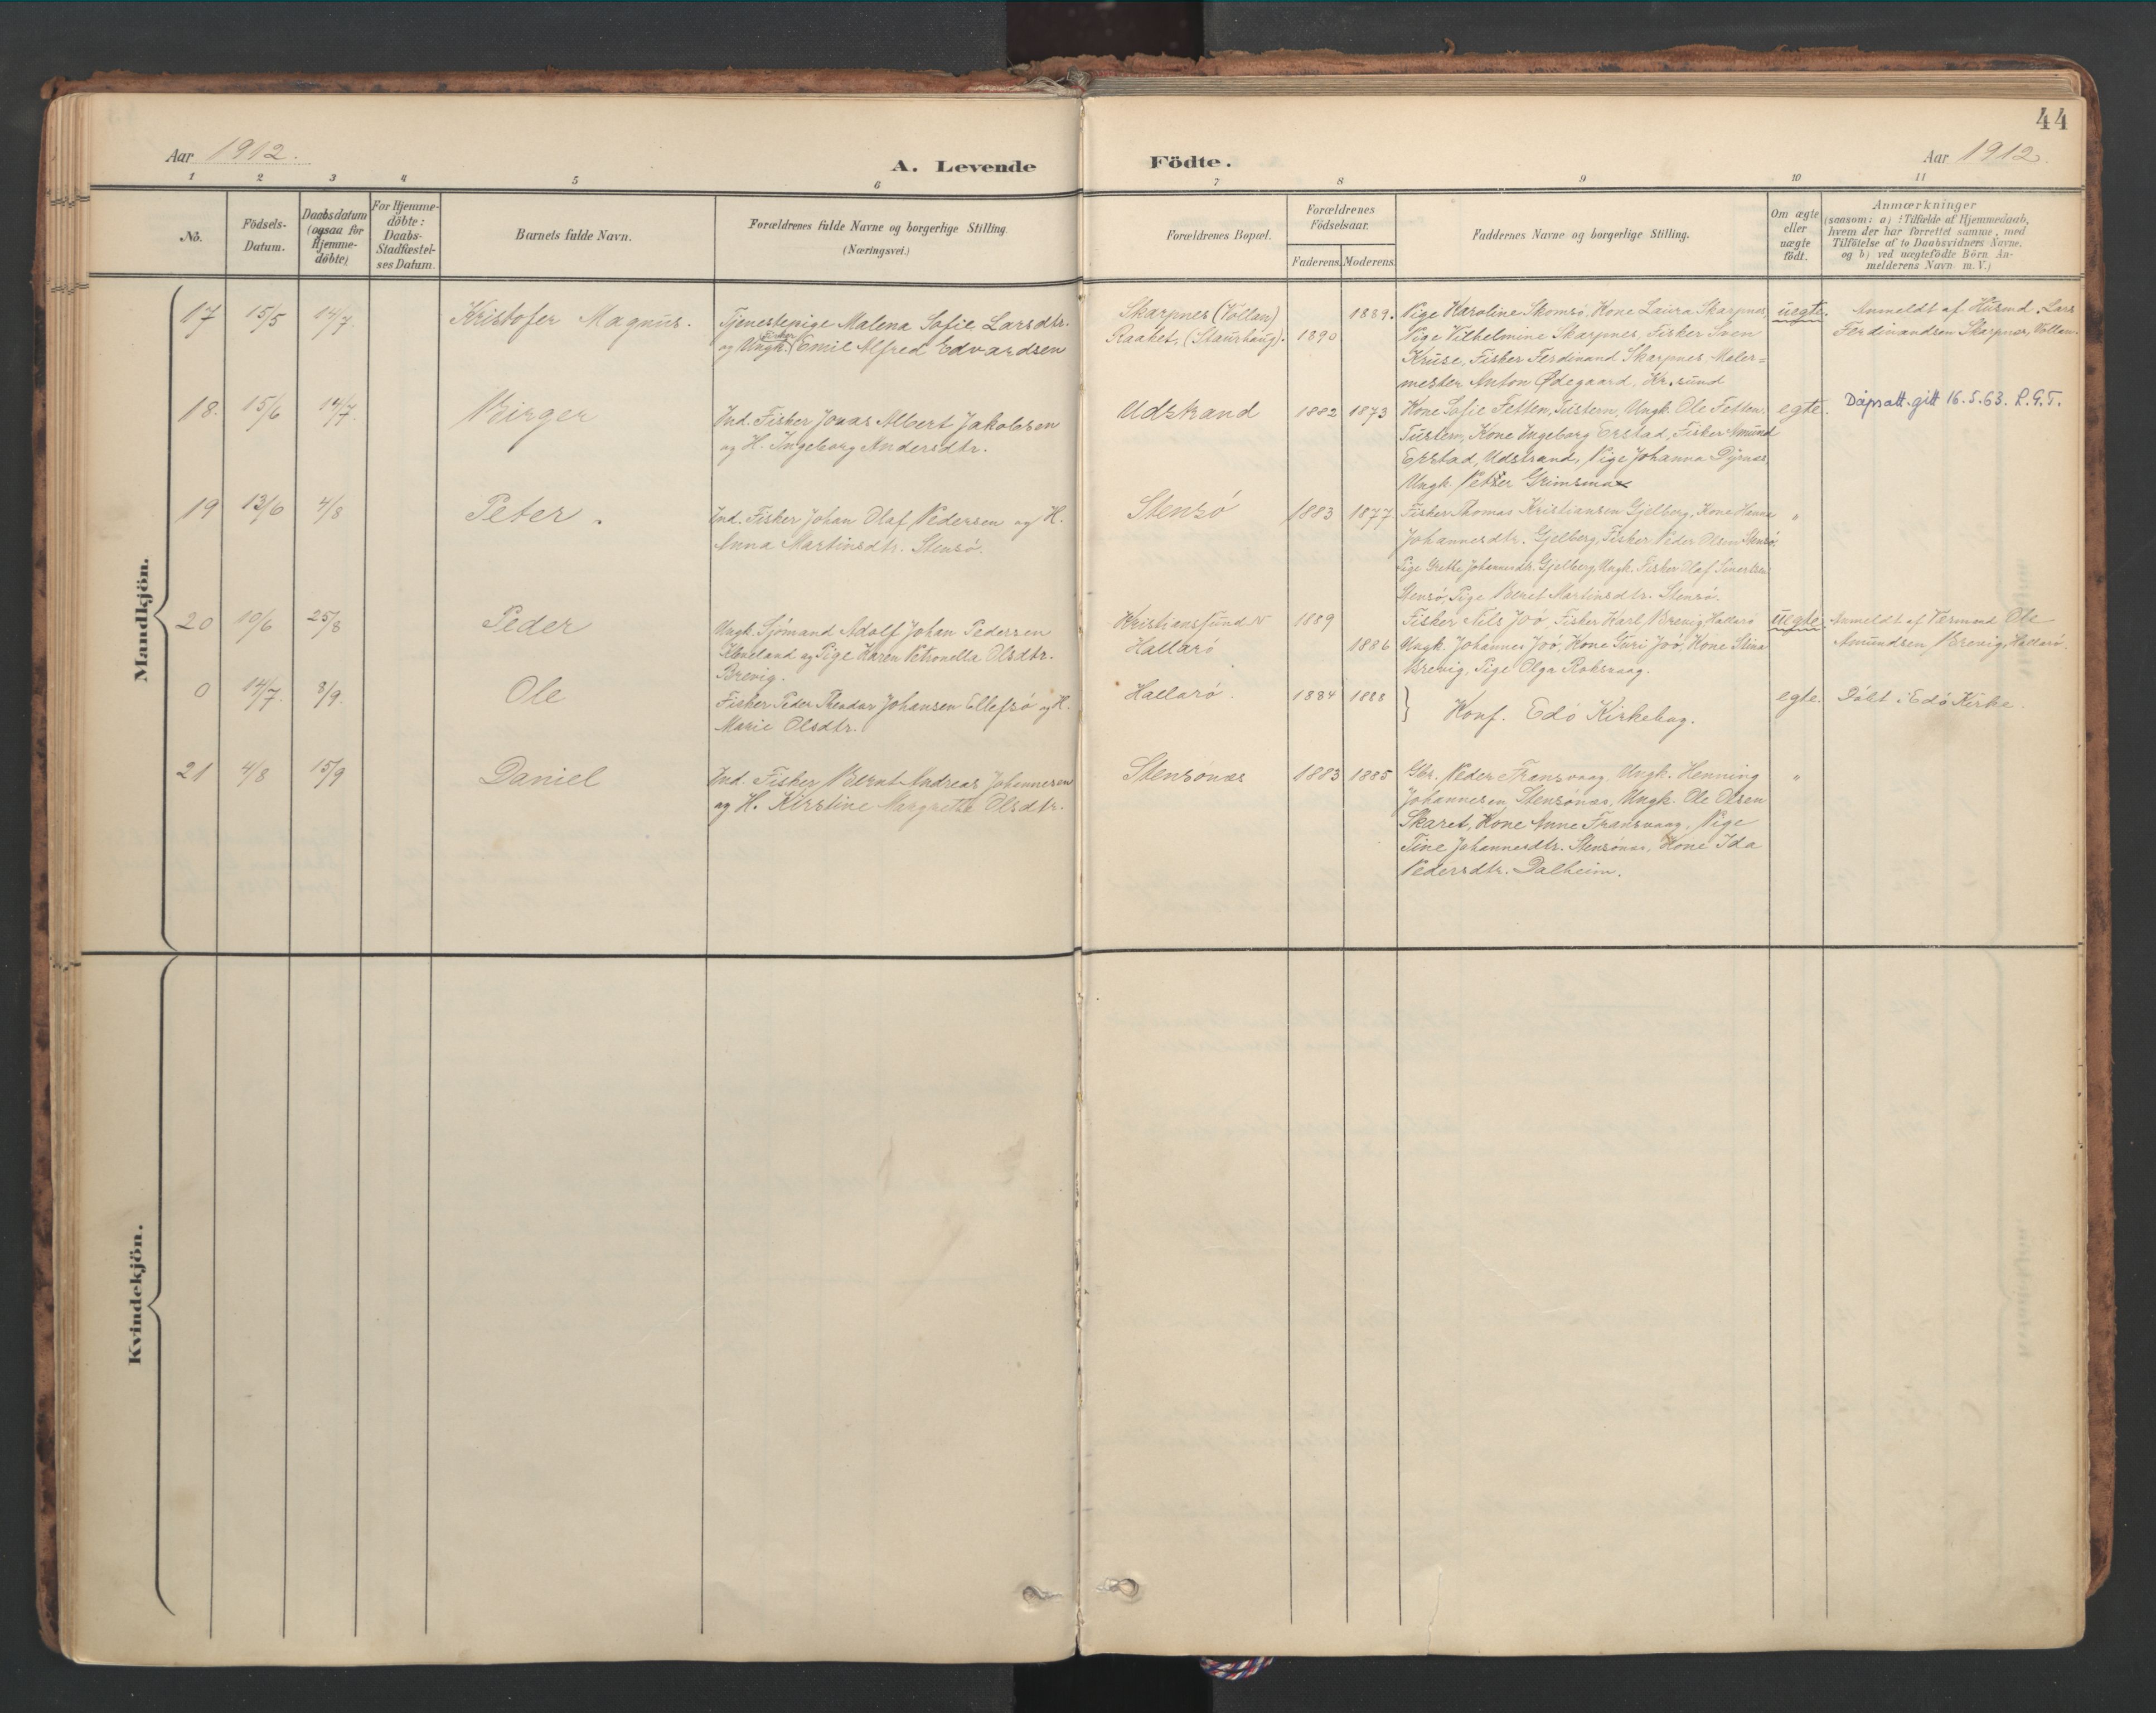 44
Aar 1912.
A. Levende Födte.
Aar 1912.
1 2 3 4 5 6 7 8 9 10 11
No.
Födsels-
Datum.
Daabsdatum
(ogsaa for
Hjemme-
döbte)
For Hjemme-
döbte:
Daabs-
Stadfæstel-
ses Datum.
Barnets fulde Navn.
Forældrenes fulde Navne og borgerlige Stilling.
(Næringsvei.)
Forældrenes Bopæl.
Forældrenes
Födselsaar.
Faderens. Moderens.
Faddernes Navne og borgerlige Stilling.
Om ægte
eller
uægte
födt.
Anmærkninger
(saasom: a) i Tilfælde af Hjemmedaab,
hvem der har forrettet samme, med
Tilföielse af to Daabsvidners Navne.
og b) ved uægtefödte Börn An-
melderens Navn m. V.)
Mandkjön.
17 15/5 14/7. Kristofer Magnus.
Tjenestepige Malena Sofie Larsdtr.
og Ungk. Fisker Emil Alfred Edvardsen
Skarpnes (Vollan)
Raaket, (Staurhaug).
1890 1889.
Pige Karoline Skomsö, Kone Laura Skarpnes,
Pige Vilhelmine Skarpnes, Fisker Sven
Kruse, Fisker Ferdinand Skarpnes, Maler=
mester Anton Ødegaard, Kr.sund
uegte.
Anmeldt af Husmd. Lars
Ferdinandsen Skarpnes, Vollan.
18. 15/6 14/7. Birger
Ind. Fisker Jonas Albert Jakobsen
og H. Ingeborg Andersdtr.
Udstrand 1882 1873
Kone Sofie Fetten, Tustern, Ungk. Ole Fetten,
Tustern, Kone Ingeborg Erstad, Fisker Amund
Erstad, Udstrand, Pige Johanna Dyrnes,
Ungk. Petter Grimsmo
egte.
Dåpsatt. gitt 16.5.63. P.G.T.
19 13/6 4/8 Peter.
Ind. Fisker Johan Olaf Pedersen og H.
Anna Martinsdtr. Stensö.
Stensö 1883 1877
Fisker Thomas Kristiansen Gjelberg, Kone Hanna
Johannesdtr. Gjelberg, Fisker Peder Olsen Stensö,
Pige Grethe Johannesdtr. Gjelberg, Ungk. Fisker Olaf
Stensö, Pige Beret Martinsdtr. Stensö.
"
20 10/6 25/8 Peder
Ungk. Sjömand Adolf Johan Pedersen
og Pige Karen Petronella Olsdtr.
Brevig.
Kristiansfund N 1889
Hallarö 1886
Fisker Nils Joö, Fisker Karl Brevig, Hallarö
Ungk. Johannes Joö, Kone Guri Joö, Kone Stina
Brevig, Pige Olga Roksvaag.
uegte.
Anmeldt af Fermand Ole
Amundsen Brevig, Hallarö.
0 14/7. 8/9. Ole
Fisker Peder Teodor Johansen Ellefsö og H.
Marie Olsdtr.
Hallarö. 1884 1888
Konf. Edö Kirkebog.
egte.
Döbt i Edö Kirke.
21 4/8 15/9 Daniel
Ind. Fisker Bernt Andreas Johannesen
og H. Kirstine Margrethe Olsdtr.
Stensönes 1883 1885
Gbr. Peder Fransvaag, Ungk. Henning
Johannesen, Stensönes, Ungk. Ole Olsen
Skaret, Kone Anne Fransvaag, Pige
Tine Johannesdtr. Stensönes, Kone Ida
Pedersdtr. Dalheim.
"
Kvindekjön.